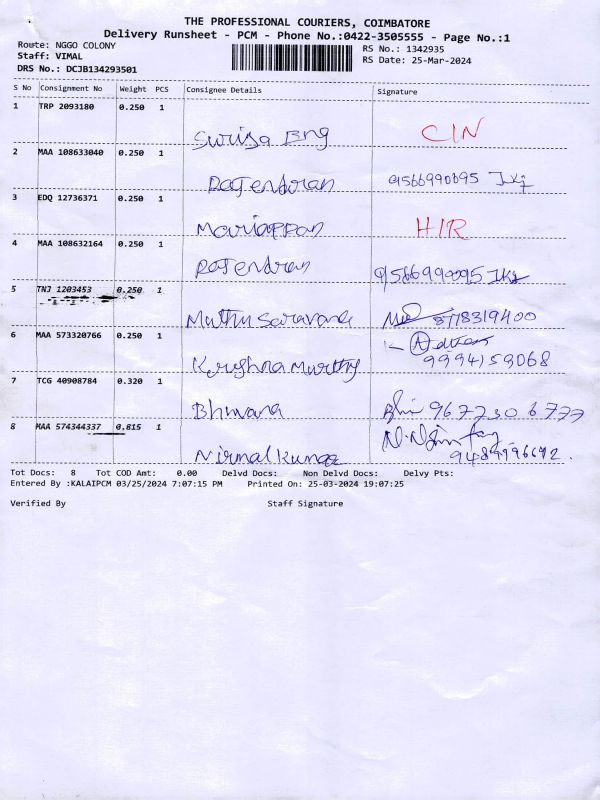 THE PROFESSIONAL COURIERS, COIMBATORE
Delivery Runsheet - PCM - Phone No.:0422-3505555 - Page No.:1
Route: NGGO COLONY
RS No.: 1342935
Staff: VIMAL
RS Date: 25-Mar-2024
DRS No.: DCJB134293501
S No Consignment No Weight PCS Consignee Details Signature
1 TRP 2093180 0.250 1
Suriya Eng CIN
2 MAA 108633040 0.250 1
Rajendran
3 EDQ 12736371 0.250 1
Mariappan HIR
4 MAA 108632164 0.250 1
Rajendran
5 TNJ 1203453 0.250 1
Muthu Saravana 8778319400
6 MAA 573320766 0.250 1
Krishna Murthy 9994159068
7 TCG 40908784 0.320 1
Bhuvana 9677306777
8 MAA 574344337 0.815 1
Nirmal Kumar
Tot Docs: 8 Tot COD Amt: 0.00 Delvd Docs: Non Delvd Docs: Delvy Pts:
Entered By :KALAIPCM 03/25/2024 7:07:15 PM Printed On: 25-03-2024 19:07:25
Verified By Staff Signature